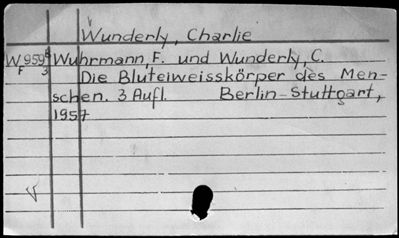 Wunderly, Charlie
W 959 B Wuhrmann, F. und Wunderly, C.
F 3 Die Bluteiweisskörper des Men-
schen. 3 Aufl. Berlin-Stuttgart,
1957